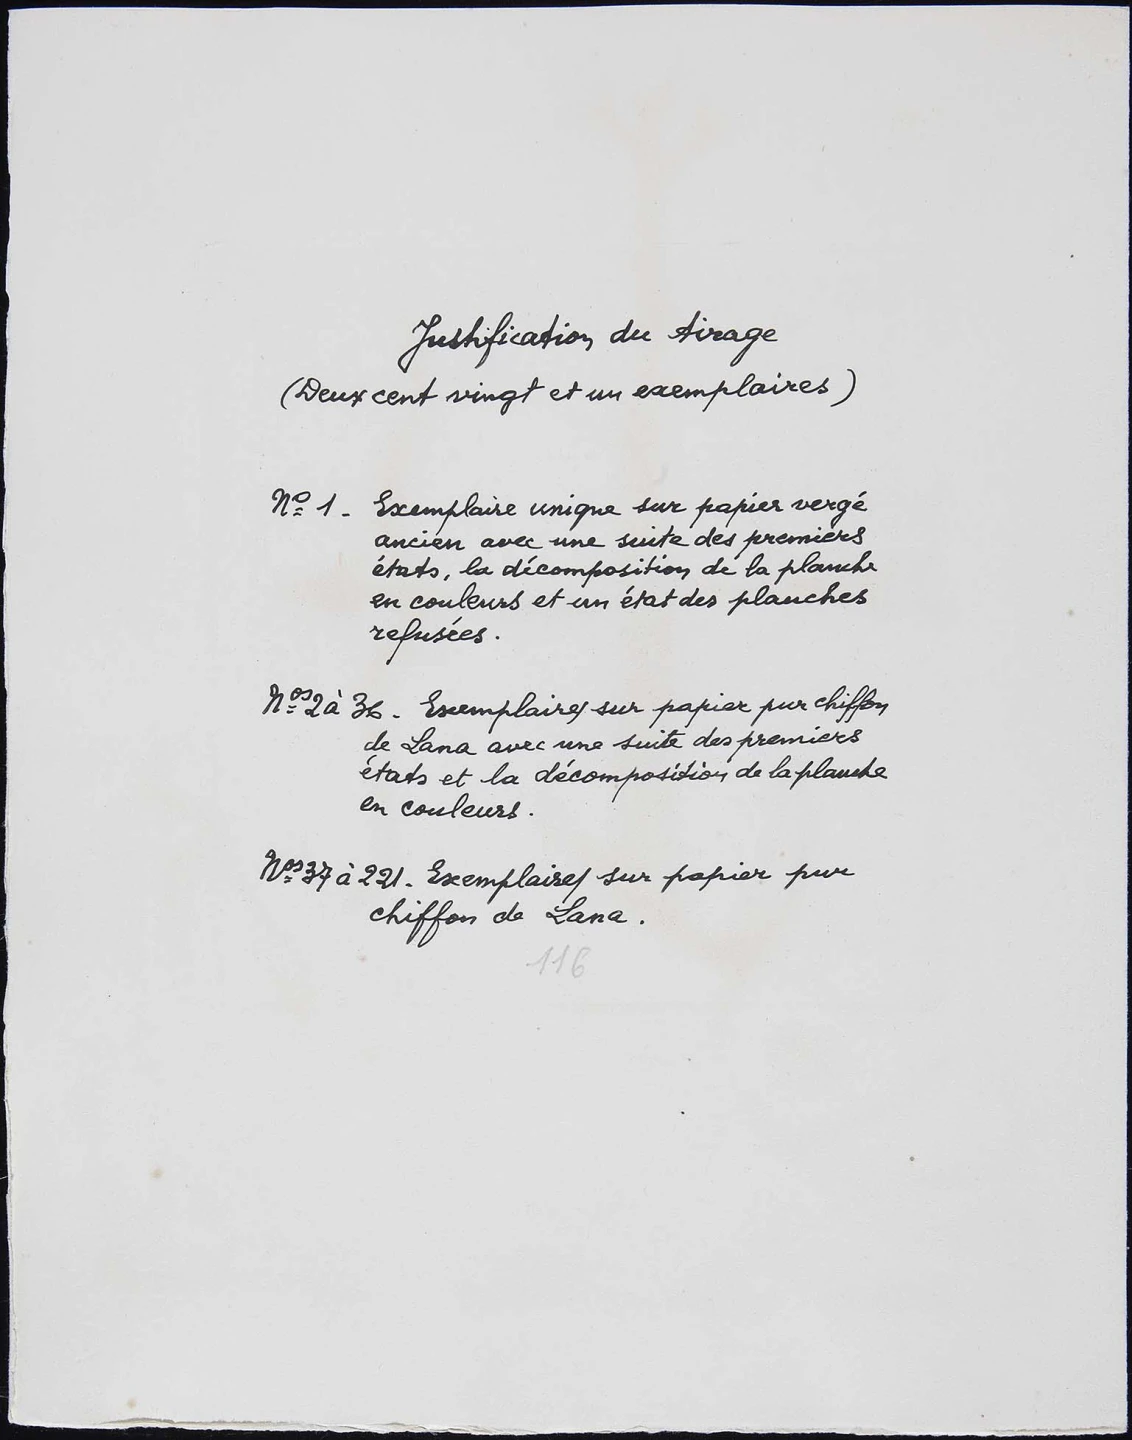 Justification du tirage
(Deux cent vingt et un exemplaires)
Nº 1 - Exemplaire unique sur papier vergé
ancien avec une suite des premiers
états, la décomposition de la planche
en couleurs et un état des planches
refusées.
Nos 2 à 36 - Exemplaires sur papier pur chiffon
de Lana avec une suite des premiers
états et la décomposition de la planche
en couleurs.
Nos 37 à 221 - Exemplaires sur papier pur
chiffon de Lana.
116